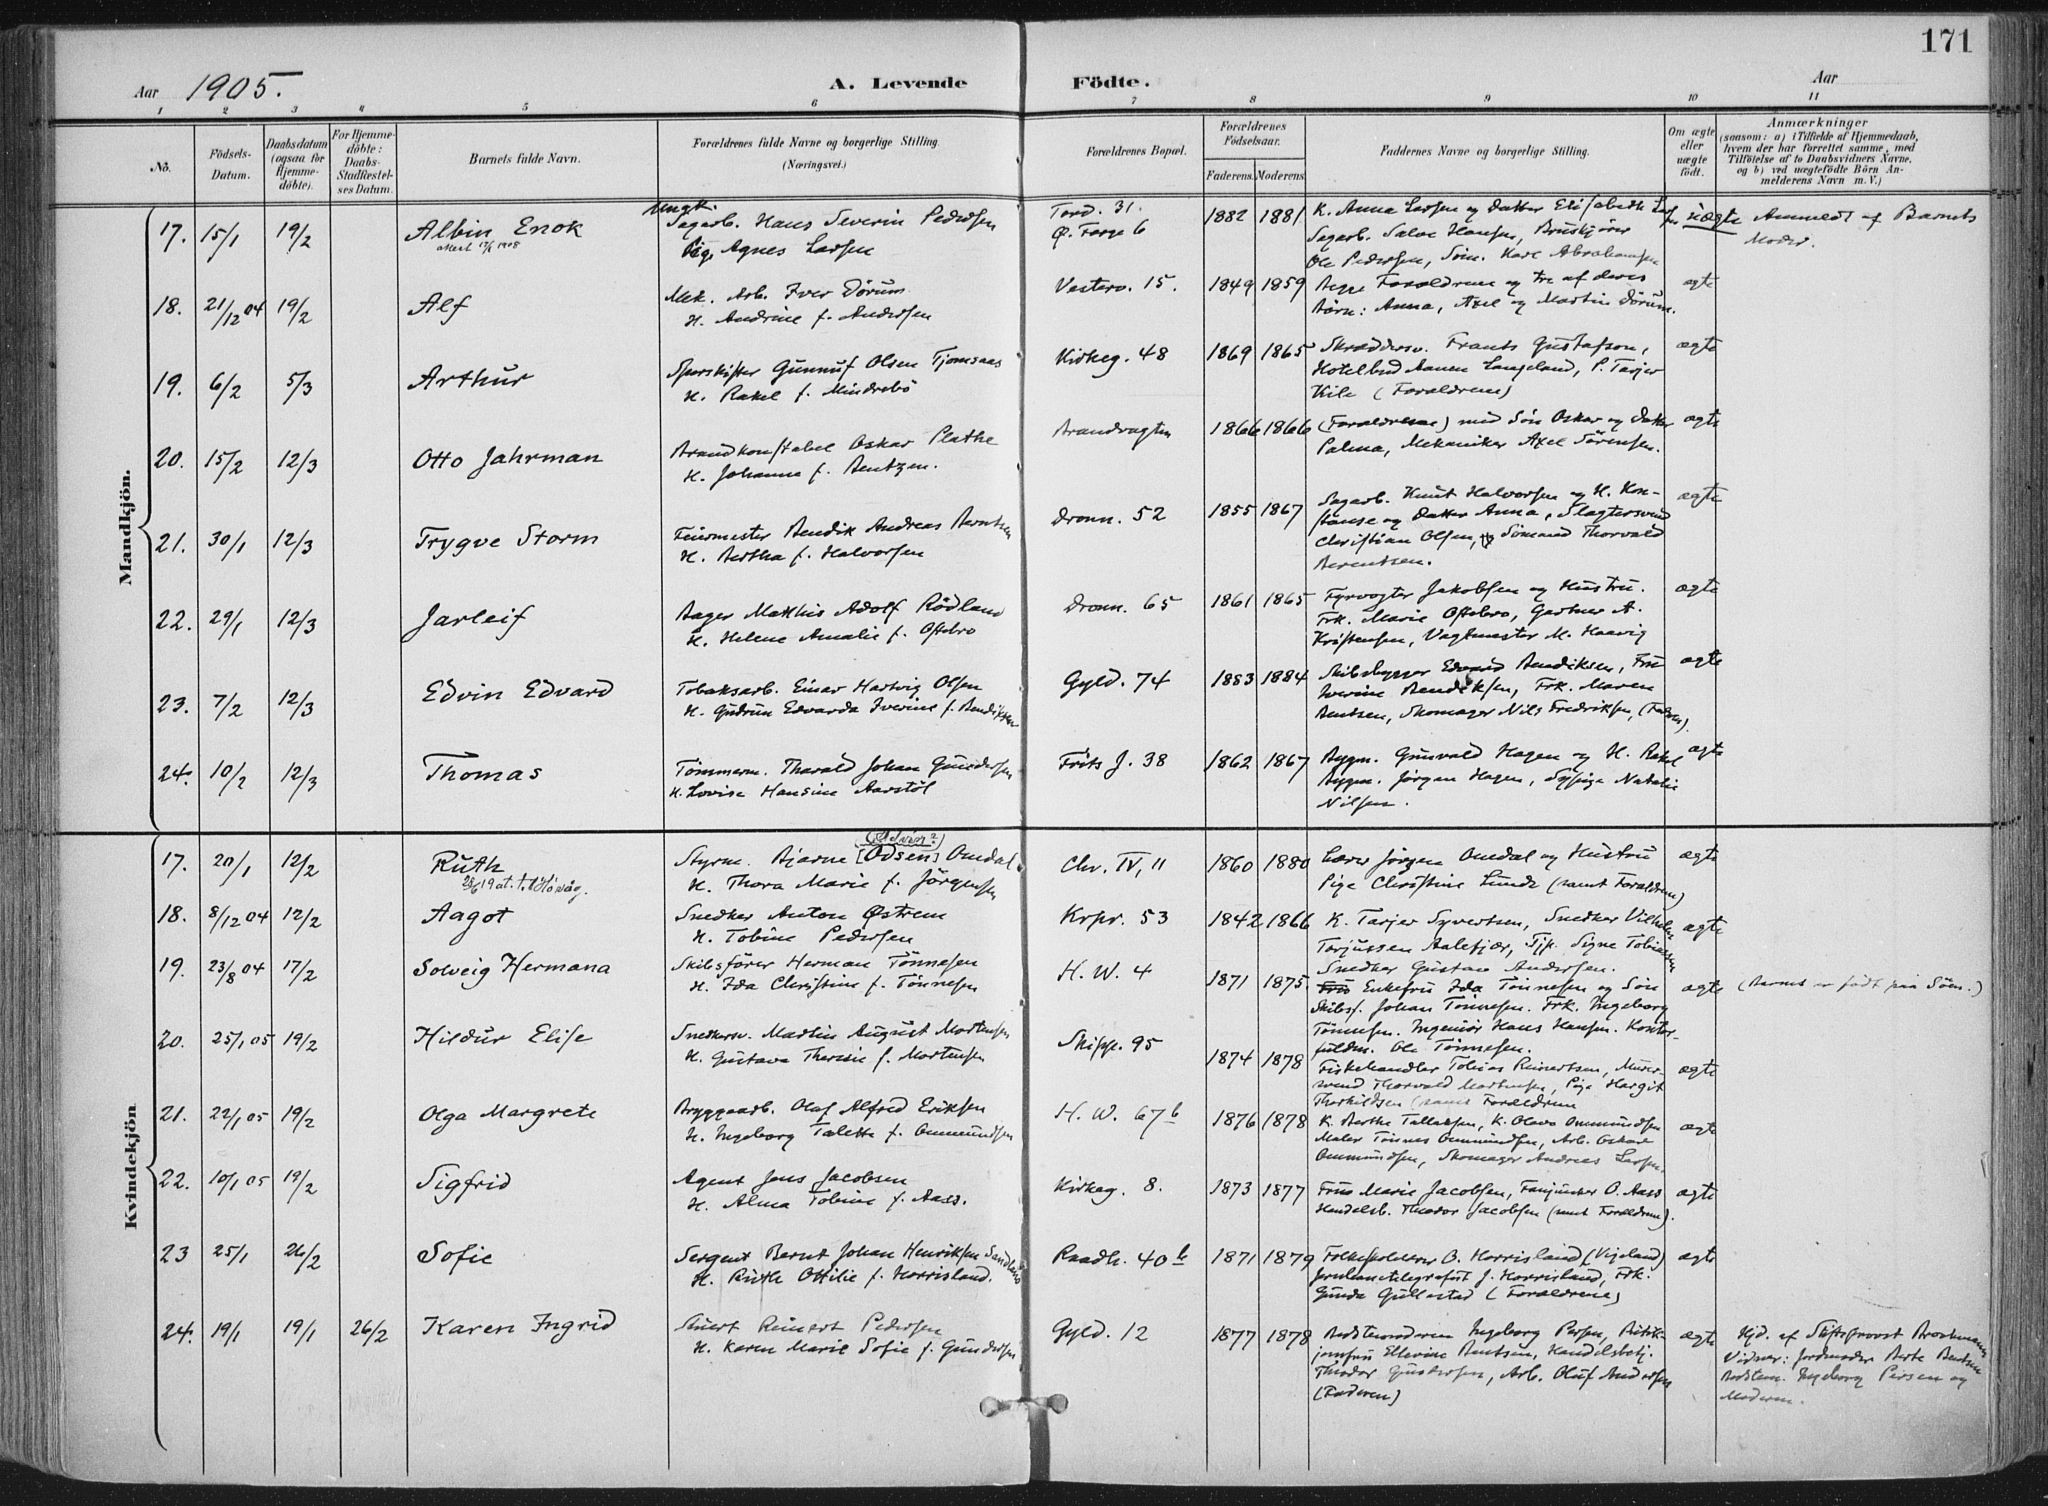 171
Aar 1905. A. Levende Födte. Aar
1 2 3 4 5 6 7 8 9 10 11
No.
Födsels-Datum.
Daabsdatum (ogsaa for Hjemme-döbte).
For Hjemme-döbte: Daabs-Stadfæstel-ses Datum.
Barnets fulde Navn.
Forældrenes fulde Navne og borgerlige Stilling. (Næringsvei.)
Forældrenes Bopæl.
Forældrenes Födselsaar.
Faderens. Moderens.
Faddernes Navne og borgerlige Stilling.
Om ægte eller uægte födt.
Anmærkninger
(saasom: a) i Tilfælde af Hjemmedaab,
hvem der har forrettet samme, med
Tilföielse af to Daabsvidners Navne,
og b) ved uægtefödte Börn An-
melderens Navn m. V.)
Mandkjön.
17. 15/1 19/2 Albin Enok
Ungk. Sagarb. Hans Severin Pedersen
Pige Agnes Larsen
Tord. 31.
Ø. 6
1882 1881
K. Anna Larsen og Datter Elisabeth
Sagarb. Salve Hansen,
Ole Pedersen, Söm. Karl Abrahamsen
uægte Anmeldt af Barnets
Moder.
18. 21/12 04 19/2 Alf
Mek. Arb. Iver Dørum
H. Andrine f. Andersen
Vesterv. 15. 1849 1859
Begge Forældrene og tre af deres
Börn: Anna, Axel og Martin Dörum.
ægte
19. 6/2 5/3 Arthur
Sporskifter Gunnuf Olsen Tjomsaas
H. Rakel f. Mindrebö
Kirkeg. 48 1869 1865
Skræddersv. Frants Gustafson,
Hotelbud Aanen Langeland, P. Tarjer
Kile (Forældrene)
ægte
20. 15/2 12/3 Otto Jahrman
Brandkonstabel Oskar Plathe
H. Johanne f. Bentzen.
Brandvagten 1866 1866
(Forældrene) med Sön Oskar og Datter
Palma, Mekaniker Axel Sörensen.
ægte
21. 30/1 12/3 Trygve Storm
Feiermester Bendik Andreas Berntsen
H. Bertha f. Halvorsen
Dronn. 52 1855 1867
Sagarb. Knut Halvorsen og H. Kon-
stanse og Datter Anna, Slagtersvend
Christian Olsen, Sömand Thorvald
Berentsen.
ægte
22. 29/1 12/3 Jarleif
Bager Mathis Adolf Rödland
H. Helene Amalie f. Oftebro
Dronn. 65 1861 1865
Fyrvogter Jakobsen og Hustru.
Frk. Marie Oftebro, Gartner A.
Kristensen, Vagtmester M. Haavig
ægte
23. 7/2 12/3 Edvin Edvard
Tobaksarb. Einar Hartvig Olsen
H. Gudrun Edvarda Iverine f. Bendiksen
Gyld. 74 1883 1884
Skibsbygger Edvard Bendiksen, Fru
Iverine Bendiksen, Frk. Maren
Bentsen, Skomager Nils Fredriksen, (Faderen).
ægte
24. 10/2 12/3 Thomas
Tömmerm. Tharald Johan Gundersen
H. Lovise Hansine Aarstöl
Frits J. 38 1862 1867
Bygm. Gunvald Hagen og H. Rakel
Bygm. Jörgen Hagen, Sypige Natalie
Nilsen.
ægte
Kvindekjön
17. 20/1 12/2 Ruth
Styrm. Bjarne [Odsen] Omdal
H. Thora Marie f. Jörgensen
Chr. IV, 11 1860 1880
Lærer Jörgen Omdal og Hustru
Pige Christine Lunde (samt Forældrene)
ægte
18. 8/12 04 12/2 Aagot
Snedker Anton Østrem
H. Tobine Pedersen
Krpr. 53 1842 1866
K. Tarjer Syvertsen, Snedker Vilhelm
Torjussen Aalefjær, Tjp. Signe Tobiassen
Snedker Gustav Andersen.
ægte
19. 23/8 04 17/2 Solveig Hermana
Skibsförer Herman Tönnesen
H. Ida Christine f. Tönnesen
H. W. 4 1871 1875
Enkefru Ida Tönnesen og Sön
Skibsf. Johan Tönnesen. Frk. Ingeborg
Tönnesen. Ingeniör Hans Hansen. Kontor-
fuldm. Ole Tönnesen.
ægte (Barnet er födt paa Söen.)
20. 25/1 05 19/2 Hildur Elise
Snedkersv. Martin August Mortensen
H. Gustava Theresie f. Mortensen
Skippr. 95 1874 1878
Fiskehandler Tobias Reinertsen, Murer-
svend Thorvald Mortensen, Pige Hargit
Thorkildsen samt Forældrene
ægte
21. 22/1 05 19/2 Olga Margrete
Bryggearb. Olaf Alfred Eriksen
H. Ingeborg Talette f. Ommundsen
H. W. 67b 1876 1878
K. Berthe Tallaksen, K. Olava Ommundsen
Maler Tönnes Ommundsen, Arb. Oskar
Ommundsen, Skomager Andreas Larsen.
ægte
22. 10/1 05 19/2 Sigfrid
Agent Jens Jacobsen
H. Alma Tobine f. Aass.
Kirkeg. 8. 1873 1877
Frue Marie Jacobsen, Fanjunker O. Aass
Handelsb. Theodor Jacobsen (samt Forældrene).
ægte
23 25/1 26/2 Sofie
Sergent Bernt Johan Henriksen Sandland
H. Ruth Ottilie f. Horrisland.
Raadh. 40b 1871 1879
Folkeskolelærer O. Horrisland (Vigeland)
Jernbanetelegrafist J. Horrisland, Frk.
Gunda Gullestad (Forældrene)
ægte
24. 19/1 19/1 26/2 Karen Ingrid
Stuert Reinert Pedersen
H. Karen Marie Sofie f. Gundersen
Gyld. 12 1877 1878
Bedstemoderen Ingeborg Persen,
jomfru Ellevine Bentsen, Handelsbetj.
Theodor Gundersen, Arb. Oluf Andersen
(Faderen)
ægte
Hjd. af Stiftsprovst
Vidner: Jordmoder Berte Bentsen
Bedstem. Ingeborg Persen og
Moderen.